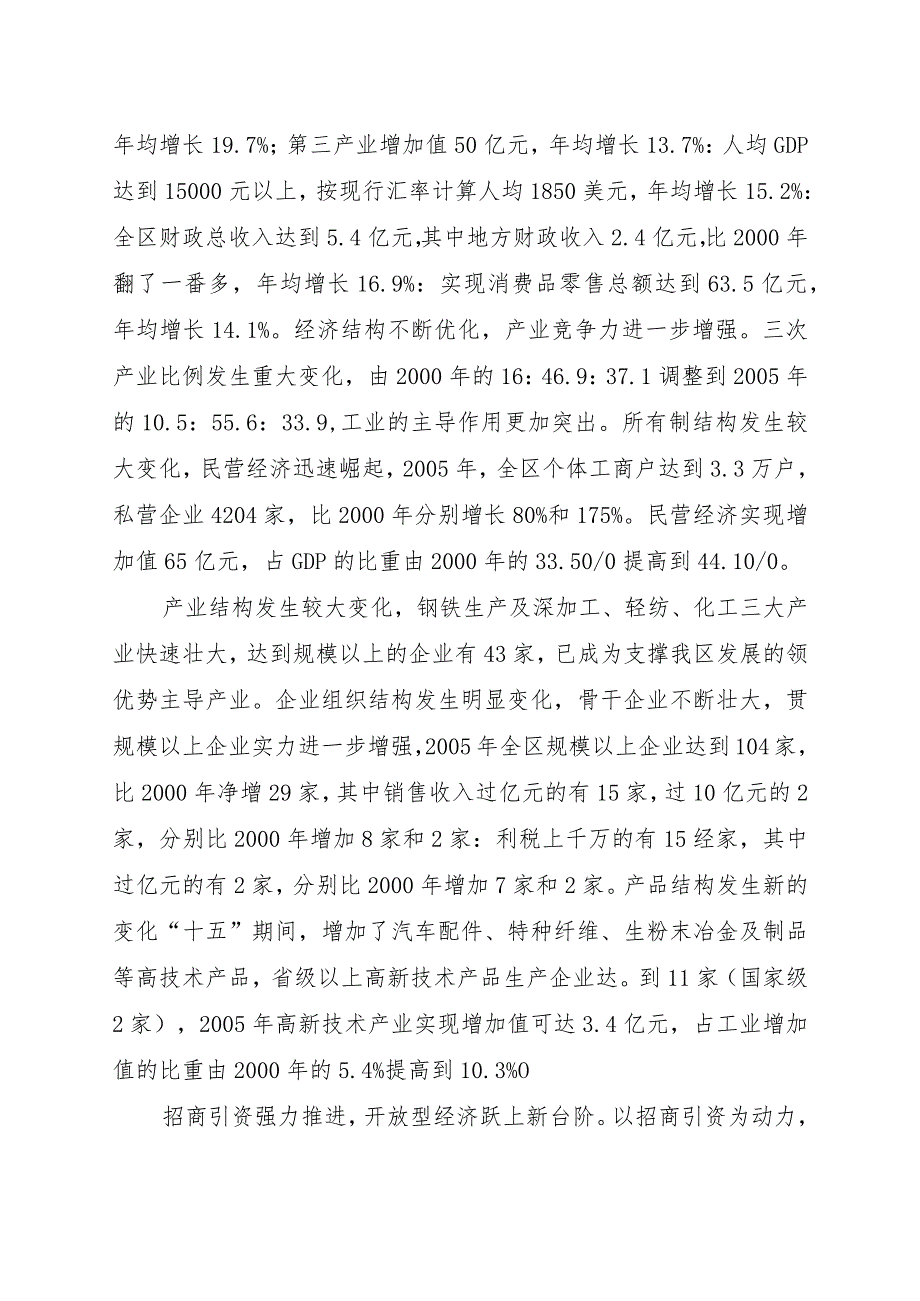 年均增长19.7%；第三产业增加值50亿元，年均增长13.7%：人均GDP
达到15000元以上，按现行汇率计算人均1850美元，年均增长15.2%：
全区财政总收入达到5.4亿元,其中地方财政收入2.4亿元,比2000年
翻了一番多，年均增长16.9%：实现消费品零售总额达到63.5亿元，
年均增长14.1%。经济结构不断优化，产业竞争力进一步增强。三次
产业比例发生重大变化，由2000年的16：46.9：37.1调整到2005年
的10.5：55.6：33.9,工业的主导作用更加突出。所有制结构发生较
大变化，民营经济迅速崛起，2005年，全区个体工商户达到3.3万户，
私营企业4204家，比2000年分别增长80%和175%。民营经济实现增
加值65亿元，占GDP的比重由2000年的33.50/0提高到44.10/0。
产业结构发生较大变化，钢铁生产及深加工、轻纺、化工三大产
业快速壮大，达到规模以上的企业有43家，已成为支撑我区发展的领
优势主导产业。企业组织结构发生明显变化，骨干企业不断壮大，贯
规模以上企业实力进一步增强,2005年全区规模以上企业达到104家，
比2000年净增29家，其中销售收入过亿元的有15家，过10亿元的2
家，分别比2000年增加8家和2家：利税上千万的有15经家，其中
过亿元的有2家，分别比2000年增加7家和2家。产品结构发生新的
变化“十五”期间，增加了汽车配件、特种纤维、生粉末冶金及制品
等高技术产品，省级以上高新技术产品生产企业达。到11家（国家级
2家），2005年高新技术产业实现增加值可达3.4亿元，占工业增加
值的比重由2000年的5.4%提高到10.3%O
招商引资强力推进，开放型经济跃上新台阶。以招商引资为动力，